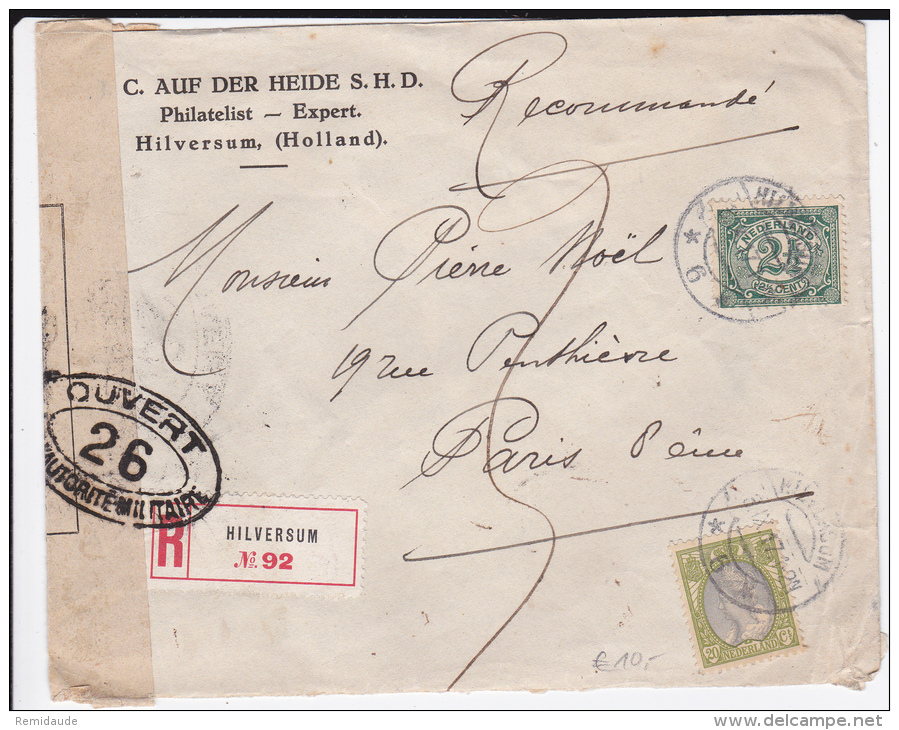 C. AUF DER HEIDE S. H. D.
Philatelist — Expert.
Hilversum, (Holland).
Recommandé
Monsieur Pierre Noël
19 rue Penthièvre
Paris 8ème
NEDERLAND
2½
2½ CENT
OUVERT
26
AUTORITÉ MILITAIRE
R
HILVERSUM
No. 92
20 Ct
NEDERLAND
€ 10,-
Remidaude
www.delcampe.net